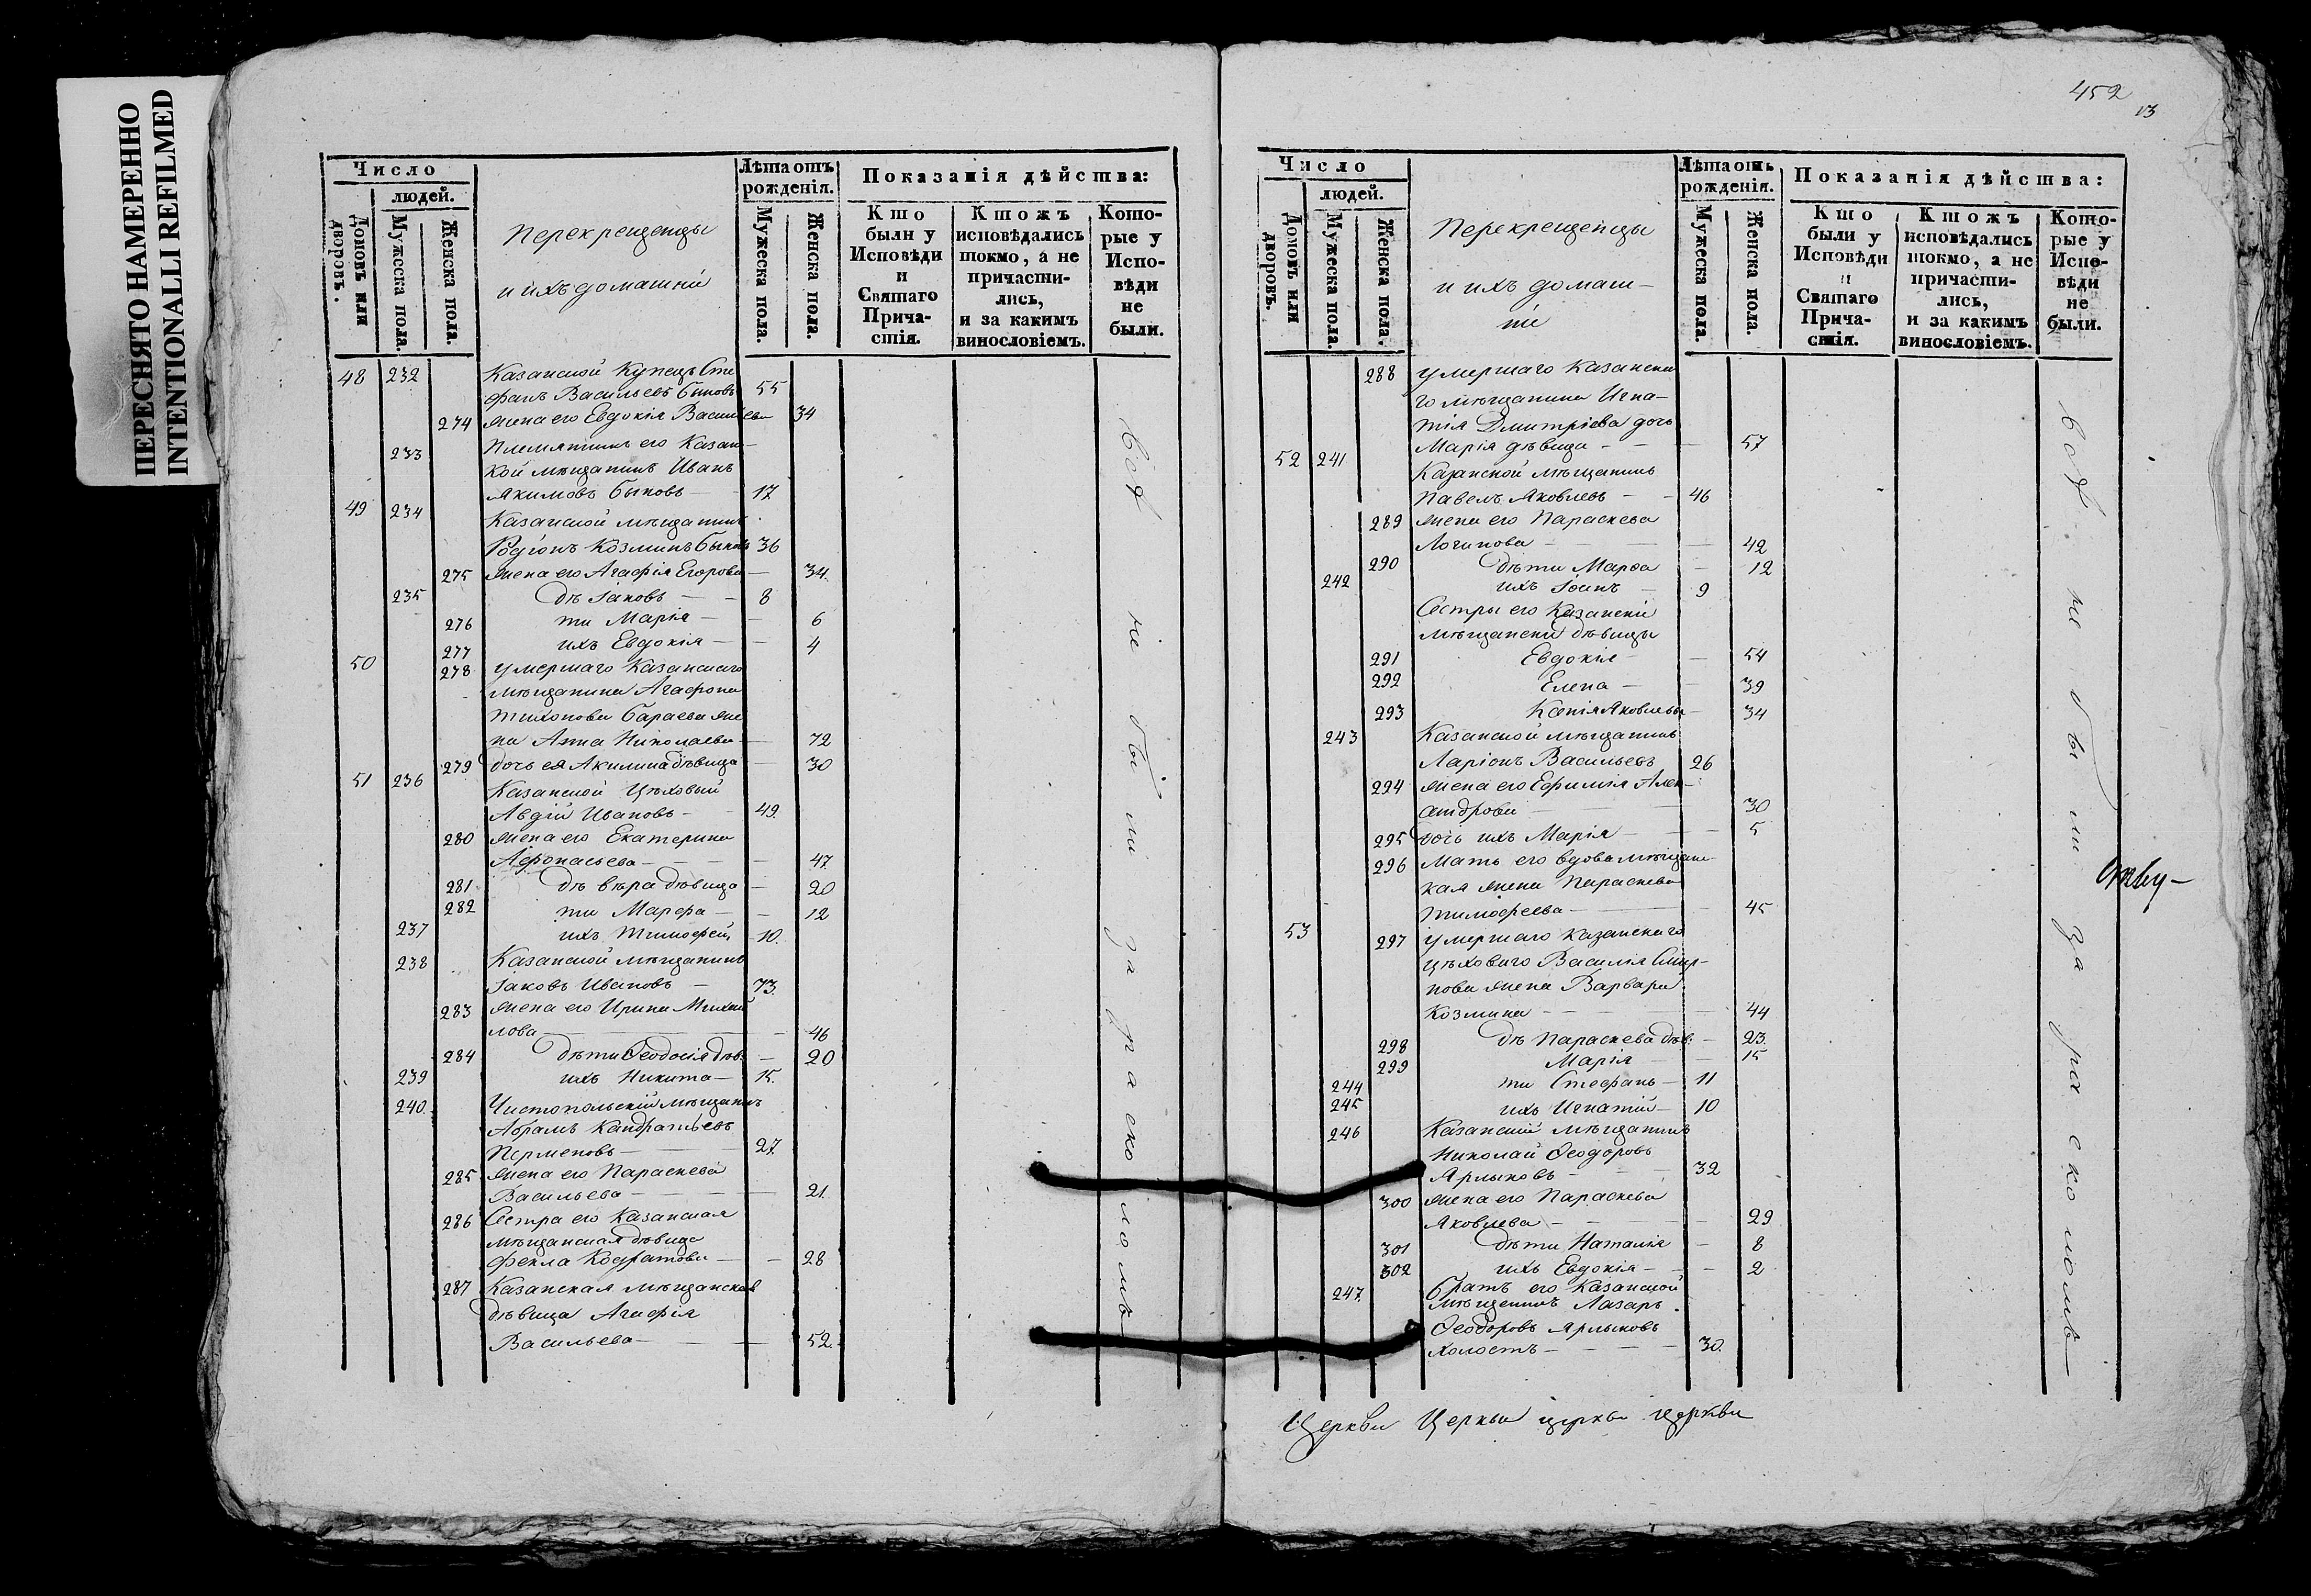 ПЕРЕСНЯТО НАМЕРЕННО
INTENTIONALLI REFILMED
Число
людей.
Домовъ или дворовъ.
Мужеска пола.
Женска пола.
Перекрещенцы
и ихъ домашнiи
Лѣта отъ рожденія.
Мужеска пола.
Женска пола.
Показанія дѣйства:
Кто были у Исповѣди и Святаго Причастія.
Ктожъ исповѣдались токмо, а не причастились, и за какимъ винословіемъ.
Которые у Исповѣди не были.
48 232 Казанской Купецъ Сте
фанъ Васильевъ Быковъ 55
274 жена его Евдокія Васильева 34
233 Племянникъ его Казан-
кой мѣщанинъ Иванъ
Якимовъ Быковъ — 17
49 234 Казанской мѣщанинъ
Родіонъ Козминъ Быковъ 36
275 жена его Агафія Егорова — 34.
235 дѣ Іаковъ — — 8
276 ти Марія — — 6
277 ихъ Евдокія — — 4
50 278 умершаго Казанскаго
мѣщанина Агафона
Тихонова Бараева же
на Анна Николаева — 72
279 дочь ея Акилина дѣвица — 30
51 236 Казанской Цѣховый
Авдій Ивановъ — — 49.
280 жена его Екатерина
Афонасьева — — — — 47.
281 дѣ Вѣра дѣвица — 20
282 ти Марфа — — 12
237 ихъ Тимофей — 10.
238 Казанской мѣщанинъ
Іаковъ Ивановъ — 73.
283 жена его Ирина Михай
лова — — — 46
284 дѣти Ѳеодосія дѣв. — 20
239 ихъ Никита — 15.
240. Чистопольскій мѣщанинъ
Абрамъ Кандратьевъ
Перменовъ — — 27.
285 жена его Параскева
Васильева — — — — 21.
286 Сестра его Казанская
мѣщанская дѣвица
Фекла Кодратова — — 28
287 Казанская мѣщанская
дѣвица Агафія
Васильева — — — 52.
всѣ не были за расколомъ
452
13
Число
людей.
Домовъ или дворовъ.
Мужеска пола.
Женска пола.
Перекрещенцы
и ихъ домаш-
ніи
Лѣта отъ рожденія.
Мужеска пола.
Женска пола.
Показанія дѣйства:
Кто были у Исповѣди и Святаго Причастія.
Ктожъ исповѣдались токмо, а не причастились, и за какимъ винословіемъ.
Которые у Исповѣди не были.
288 умершаго Казанска
го мѣщанина Игна-
тія Дмитріева дочь
Марія дѣвица — — — 57
52 241 Казанской мѣщанинъ
Павелъ Яковлевъ — — 46
289 жена его Параскева
Логинова — — — 42
290 дѣти Марѳа — 12
242 ихъ Іоаннъ — 9
Сестры его Казанскіи
мѣщанскіи дѣвицы
291 Евдокія — — 54
292 Елена — — 39
293 Ксенія Яковлевы — 34
243 Казанской мѣщанинъ
Ларіонъ Васильевъ 26
294 жена его Ефимія Алек-
сандрова — — — 30
295 дочь ихъ Марія — — — 5
296 Мать его вдова мѣщанс-
кая жена Параскева
Тимофеева — — — 45
53 297 умершаго Казанскаго
цѣховаго Василія Смир-
нова жена Варвара
Козмина — — — — 44
298 дѣ Параскева дѣв. — 23.
299 Марія — — 15
244 ти Стефанъ — 11
245 ихъ Игнатій — 10
246 Казанскій мѣщанинъ
Николай Ѳеодоровъ
Ярлыковъ — — — 32
300 жена его Параскева
Яковлева — — — — 29
301 дѣти Наталія — 8
302 ихъ Евдокія — — 2
247. братъ его Казанской
мѣщанинъ Лазарь
Ѳеодоровъ Ярлыковъ
холостъ — — — — 30.
всѣ не были за расколомъ
Церкви Церкви церкви церкви